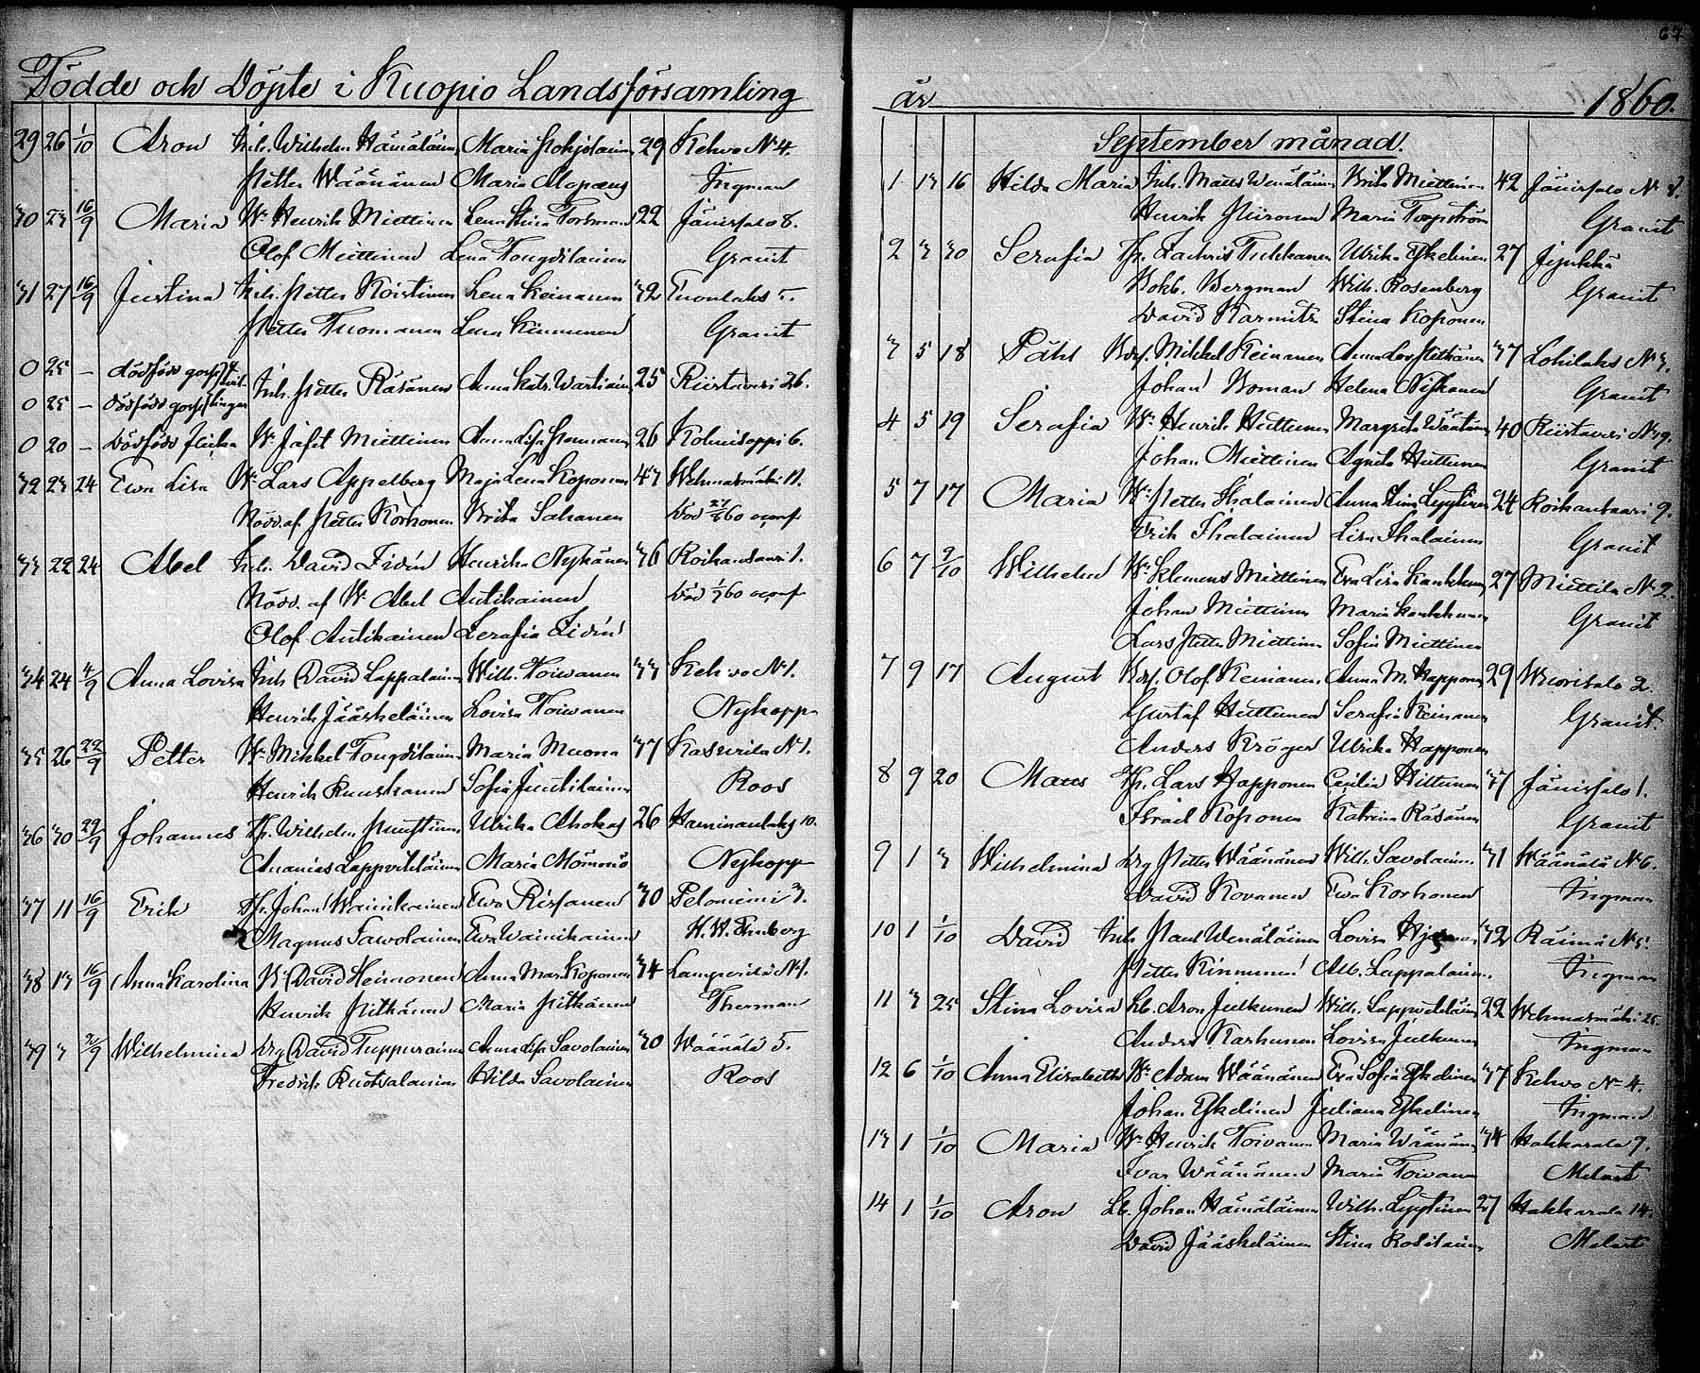 Födde och Döpte i Kuopio Landsförsamling
29 26 1/10 Aron Inh. Wilhelm Hämäläin. Maria Pohjolain. 29 Kehvo No 4.
Petter Wäänänen Maria Alopaeus Ingman
30 23 16/9 Maria Wr. Henrik Miettinen Lena Stina Forsman 22 Jänissalo 8.
Olof Miettinen Lena Tengviläinen Granit
31 27 16/9 Justina Inh. Petter Koistinen Lena Keinanen 32 Enonlaks 5.
Petter Tuomanen Lena Kinnunen Granit
0 25 — dödfödt gosse
0 25 — dödfödt gosse Inh. Petter Räsänen Anna Katr. Wartiain. 25 Riistavesi 26.
0 20 — Dödfödd flicka Wr. Jafet Miettinen Anna Lisa 26 Kolmisoppi 6.
32 23 24 Ewa Lisa Wr. Lars Appelberg Maja Lena Koponen 43 Wehmasmäki 11.
Nöddop. af Petter Korhonen Brita Sahanen
33 22 24 Abel Inh. David Lidin Henrika Nykänen 36 Roikansaari 1.
Nödd. af Wr. Abel Autikainen
Olof Autikainen Serafia Lidin
34 24 4/9 Anna Lovisa Inh David Lappalain. Wilh. Toiwanen 33 Kehvo No 1.
Henrik Jääskeläinen Lovisa Toiwanen Nykopp
35 26 22/9 Petter Wr. Mikkel Tengviläin. Maria Muona 37 Kasurila No 1.
Henrik Ruuskanen Sofia Juutilainen Roos
36 30 29/9 Johannes Tp. Wilhelm Puustinen Ulrika Ahokas 26 Haminanlaks 10.
Ananias Lappveteläinen Maria Mömmö Nykopp
37 11 16/9 Erik Tp. Johan Wainikainen Ewa Rissanen 30 Pelonniemi 3.
Magnus Sawolainen Ewa Wainikainen
38 13 16/9 Anna Karolina Wr. David Heimonen Anna Mar. Koponen 34 Lamperila No 1.
Henrik Pitkänen Maria Pitkänen Therman
39 3 2/9 Wilhelmina Drg David Tuppurainen Anna Lisa Savolainen 30 Wäänälä 5.
Fredrik Ruotsalainen Hilda Savolainen Roos
64
år 1860.
September månad.
1 13 16 Hilda Maria Inh. Matts Wenäläin. Brita Miettinen 42 Jänissalo No
Henrik Piironen Maria Granit
2 3 30 Serafia Tp. Zachris Tuhkanen Ulrika Eskelinen 27 Jynkkä
Bokh. Bergman Wilh. Rosenberg Granit
David Karmitz Stina Koponen
3 5 18 Påhl Bdsf. Mikkel Keinanen Anna Lov. Pitkänen 37 Lohilaks No 3.
Johan Boman Helena Niskanen Granit
4 5 19 Serafia Wr. Henrik Huttunen Margreta Väätäin. 40 Riistavesi No 19.
Johan Miettinen Agneta Huttunen Granit
5 7 17 Maria Wr. Petter Ihalainen Anna Stina Lyytinen 24 Roikansaari 9.
Erik Ihalainen Lisa Ihalainen Granit
6 7 2/10 Wilhelm Wr. Klemens Miettinen Eva Lisa Kankkun. 27 Miettilä No 2.
Johan Miettinen Maria Kankkunen Granit
Lars Petter Miettinen Sofia Miettinen
7 9 17 August Bdsf. Olof Keinanen, Anna M. Happonen 29 Wuorisalo 2.
Gustaf Huttunen Serafia Keinanen Granit.
Anders Kröger Ulrika Happonen
8 9 20 Matts Tp. Lars Happonen Cecilia Hiltunen 37 Jänissalo 1.
Israel Koponen Katrina Räsänen Granit
9 1 3 Wilhelmina Drg Petter Wäänänen Wilh. Savolainen 31 Wäänälä No 6.
David Kovanen Ewa Korhonen Ingman
10 1 1/10 David Inh Paul Wenäläinen Lovisa 32 Räimä No 5.
Petter Kinnunen Alb. Lappalain. Ingman
11 3 25 Stina Lovisa Lb. Aron Julkunen Wilh. Lappveteläin. 22 Wehmasmäki 25.
Anders Karhunen Lovisa Julkunen Ingman
12 6 1/10 Anna Elisabeth Wr Adam Wäänänen Eva Sofia Eskelinen 37 Kehvo No 4.
Johan Eskelinen Juliana Eskelinen Ingman
13 1 1/10 Maria Wr Henrik Toivanen Maria Wäänänen 34 Hakkarala 7.
Ivar Wäänänen Maria Toivanen Melart
14 1 1/10 Aron Lb. Johan Hämäläinen Wilh. Lyytinen 27 Hakkarala 14.
David Jääskeläinen Stina Melart